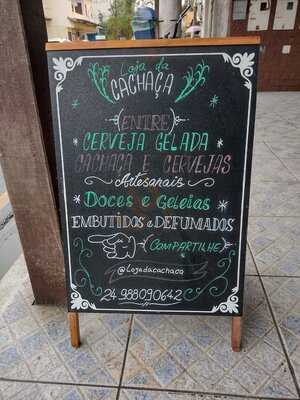 Loja da
CACHAÇA
ENTRE
CERVEJA GELADA
CACHAÇA E CERVEJAS
Artesanais
Doces e Geleias
EMBUTIDOS e DEFUMADOS
COMPARTILHE
@lojadacachaca
24 988090642